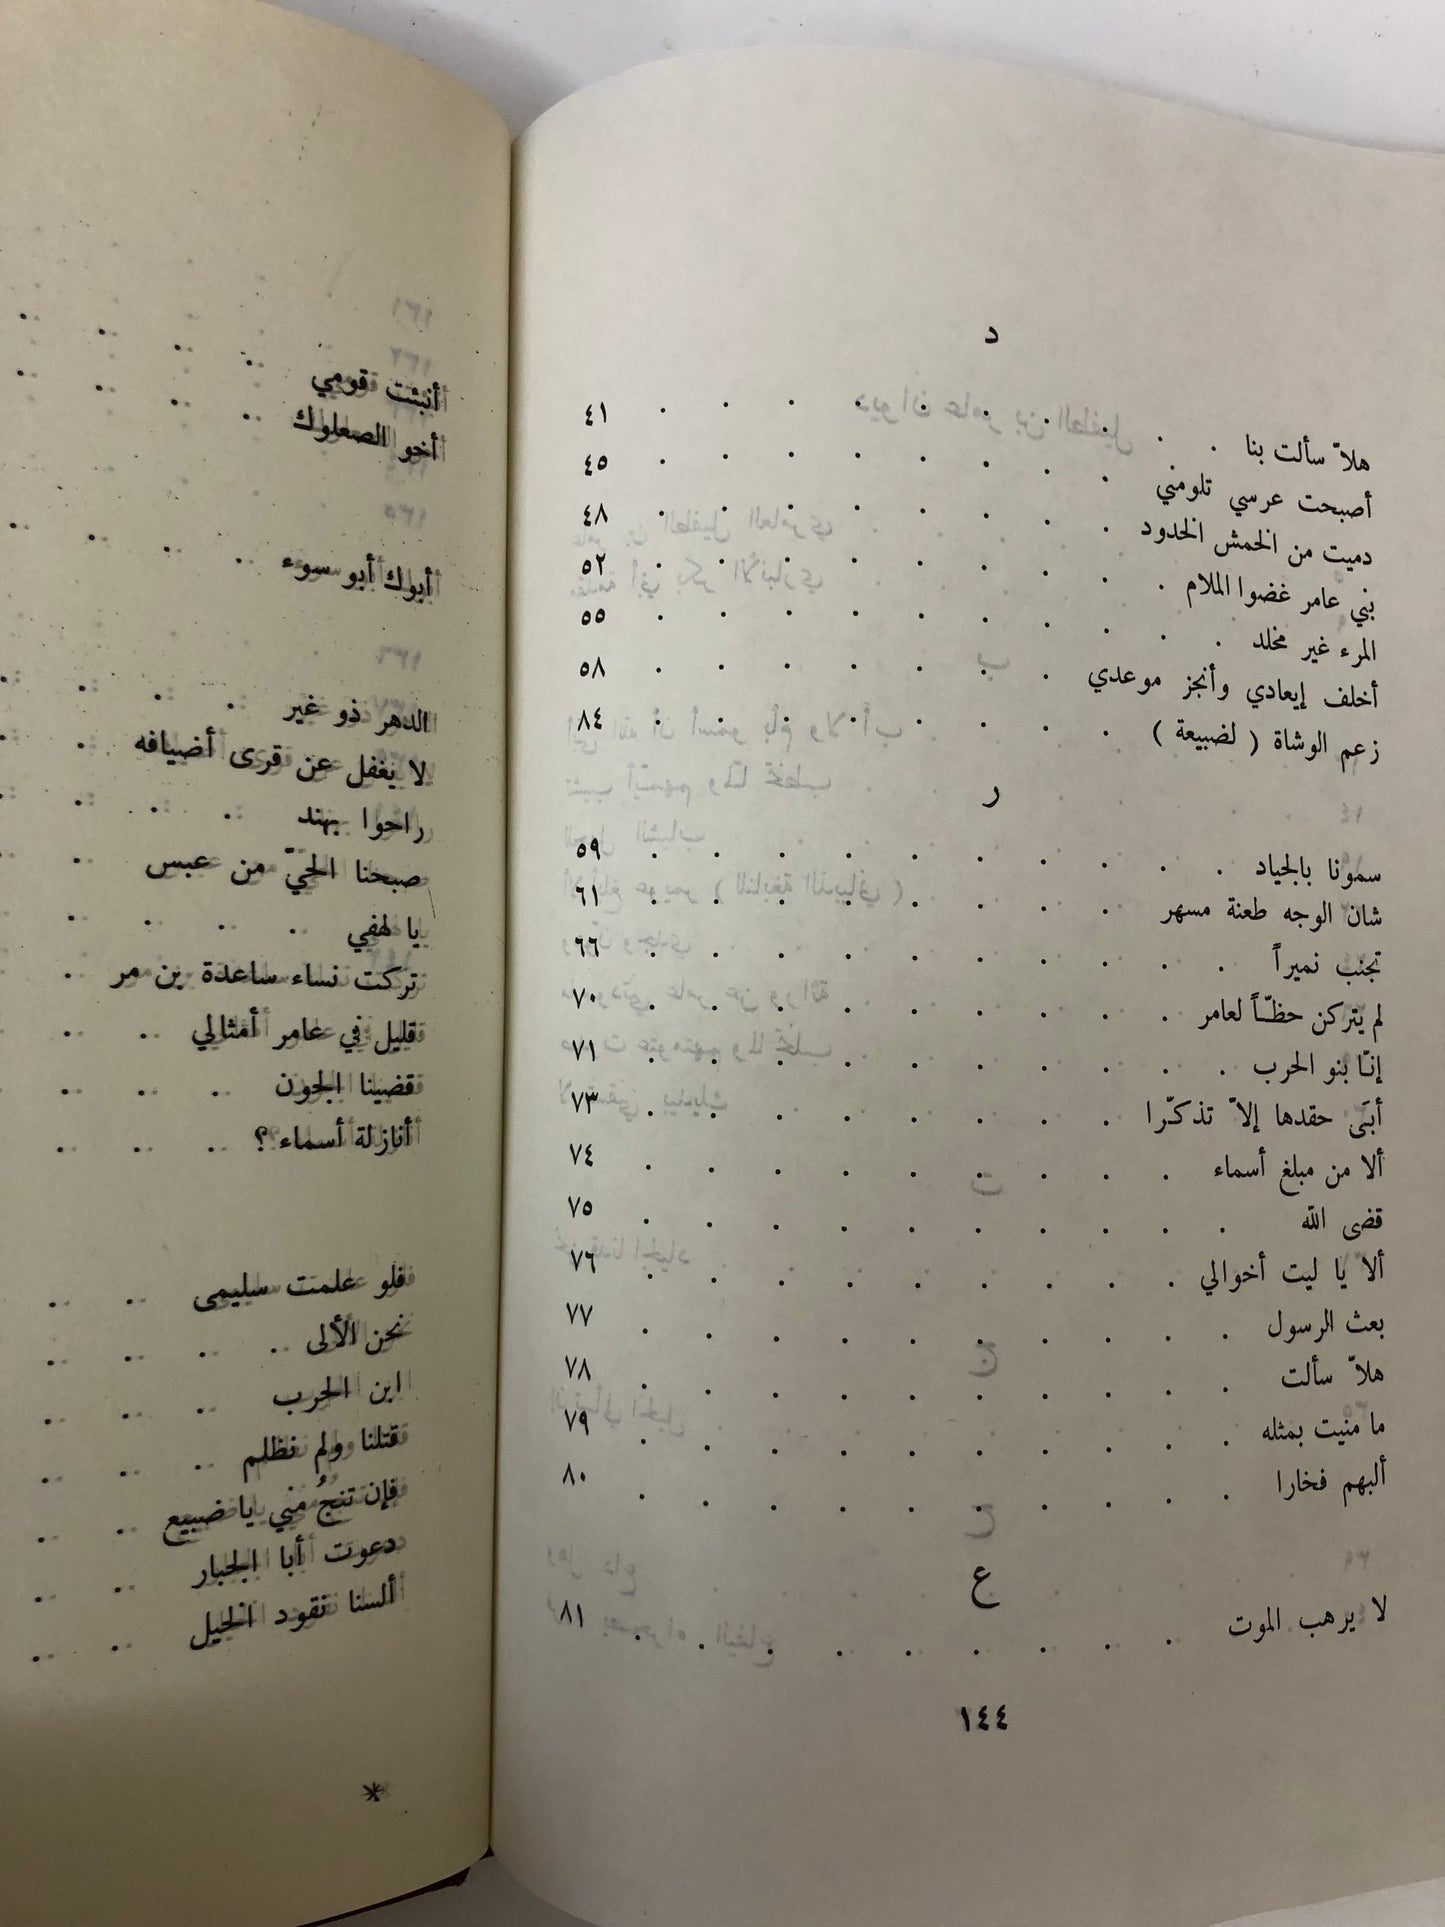 د
هلاّ سألت بنا . . . . . . . . . ٤١
أصبحت عرسي تلومني . . . . . . . . ٤٥
دميت من الخمش الخدود . . . . . . . . ٤٨
بني عامر غضوا الملام . . . . . . . . . ٥٢
المرء غير مخلد . . . . . . . . . . ٥٥
أخلف إيعادي وأنجز موعدي . . . . . . . ٥٨
زعم الوشاة ( لضبيعة ) . . . . . . . . ٨٤
ر
سمونا بالجياد . . . . . . . . . . ٥٩
شان الوجه طعنة مسهر . . . . . . . . ٦١
تجنب نميراً . . . . . . . . . . ٦٦
لم يتركن حظّاً لعامر . . . . . . . . . ٧٠
إنّا بنو الحرب . . . . . . . . . . ٧١
أبَى حقدها إلاّ تذكّرا . . . . . . . . ٧٣
ألا من مبلغ أسماء . . . . . . . . . ٧٤
قضى الله . . . . . . . . . . ٧٥
ألا يا ليت أخوالي . . . . . . . . . ٧٦
بعث الرسول . . . . . . . . . . ٧٧
هلاّ سألت . . . . . . . . . . ٧٨
ما منيت بمثله . . . . . . . . . . ٧٩
ألبهم فخارا . . . . . . . . . . ٨٠
ع
لا يرهب الموت . . . . . . . . . ٨١
١٤٤
أنبئت قومي
أخو الصعلوك
أبوك أبو سوء
الدهر ذو غير
لا يغفل عن قرى أضيافه
راحوا بهند
صبحنا الحيّ من عبس
يا لهفي
تركت نساء ساعدة بن مر
قليل في عامر أمثالي
قضينا الجون
أنازلة أسماء ؟
فلو علمت سليمى
نحن الألى
ابن الحرب
قتلنا ولم نظلم
فإن تنجُ مني يا ضبيع
دعوت أبا الجبار
ألسنا نقود الخيل
*